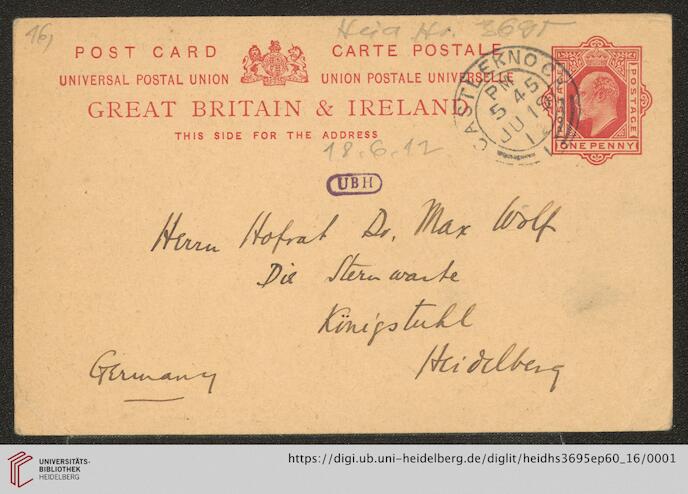 16,
Heid. Hs. 3695
POST CARD
CARTE POSTALE
UNIVERSAL POSTAL UNION
UNION POSTALE UNIVERSELLE
GREAT BRITAIN & IRELAND
THIS SIDE FOR THE ADDRESS
CASTLEKNOCK
PM
5 45
JU 18
12
POSTAGE
ONE PENNY
18.6.12
UBH
Herrn Hofrat Dr. Max Wolf
Die Sternwarte
Königstuhl
Heidelberg
Germany
UNIVERSITÄTS-
BIBLIOTHEK
HEIDELBERG
https://digi.ub.uni-heidelberg.de/diglit/heidhs3695ep60_16/0001